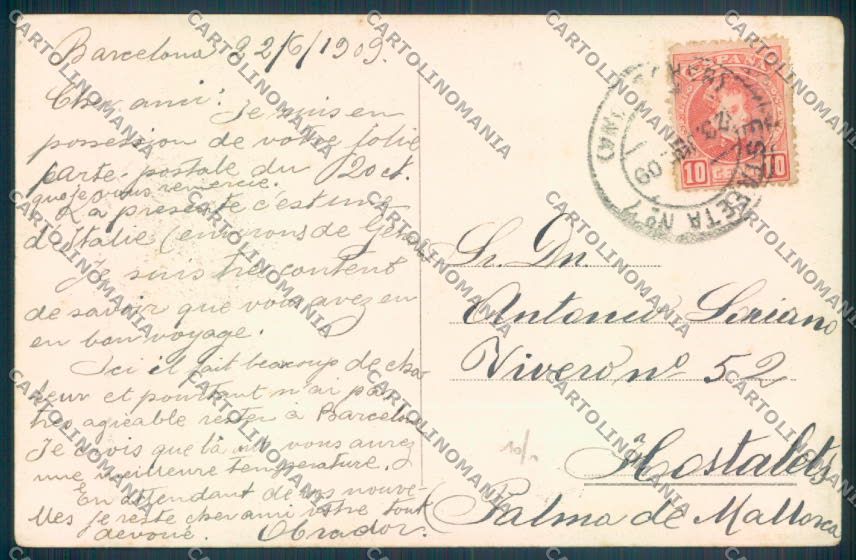 Barcelona 22/6/1909.
Cher ami:
Je suis en
possession de votre jolie
carte-postale du 20 ct.
que je vous remercie.
La presente c'est une
d'Italie (environs de
Je suis tres content
de savoir que vous avez eu
en bon voyage.
Ici il fait beaucoup de cha-
leur et pourtant n'ai pas
tres agreable rester à Barcelon
Je crois que là vous aurez
une meilleure temperature.
En attendant de vos nouve-
lles je reste cher ami votre tout
devoué. Obrador.
ESPAÑA
10 10
ESTAFETA Nº 7
09
Sr. Dn.
Antonio Soriano
Vivero nº 52
Hostalets
(Palma de Mallorca
10/-
CARTOLINOMANIA